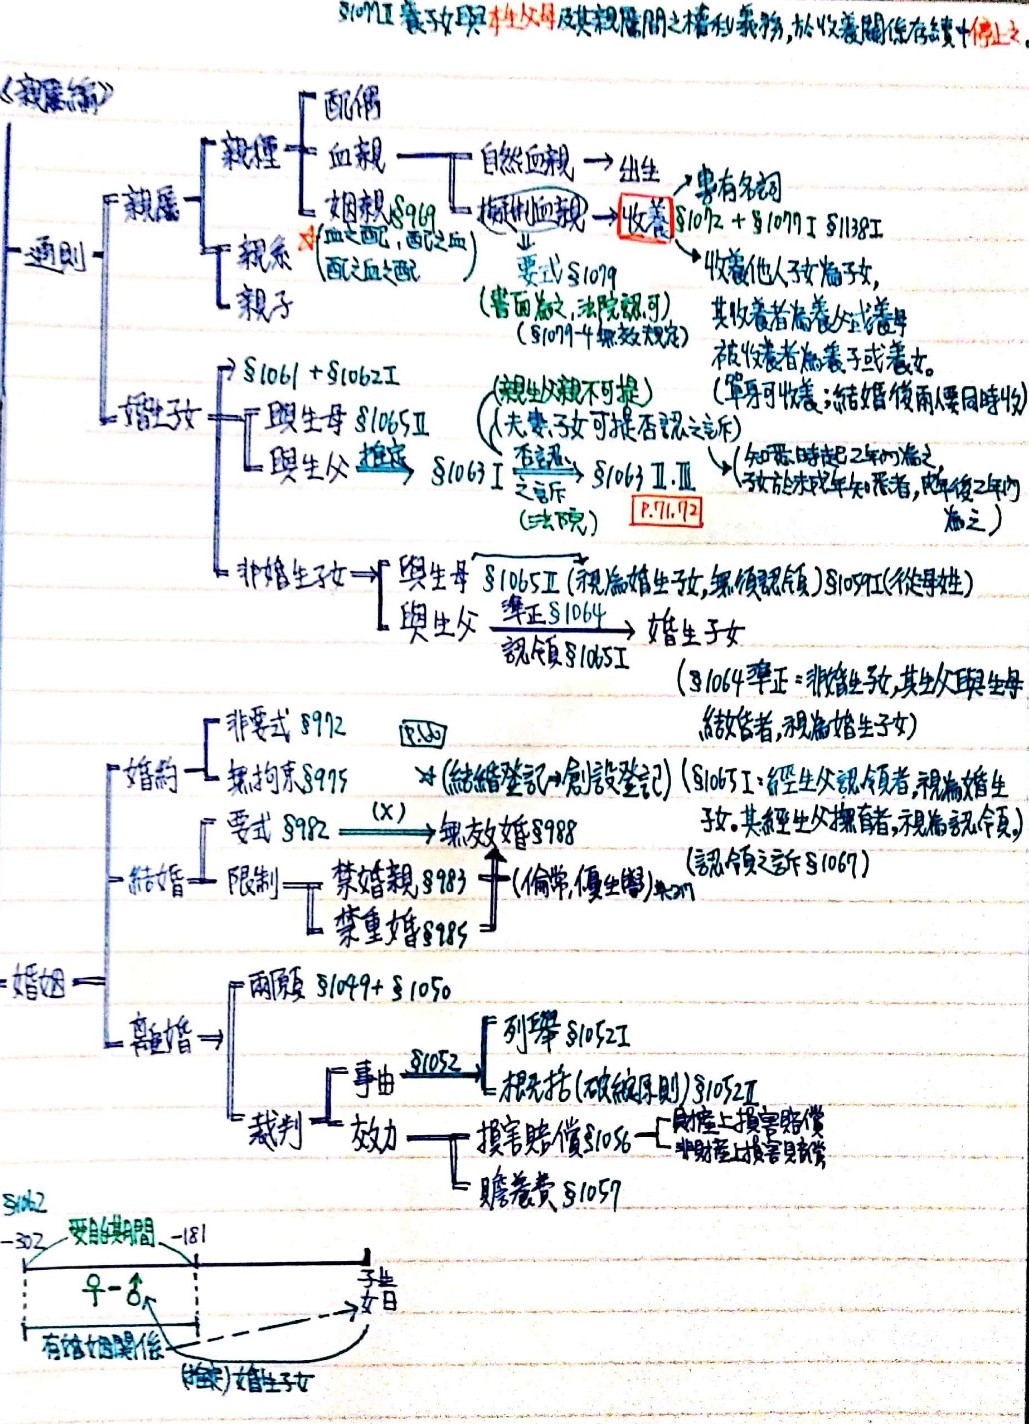 §1077Ⅱ 養子女與本生父母及其親屬間之權利義務,於收養關係存續中停止之。
《親屬編》
通則
親屬
親種
配偶
血親
自然血親 → 出生
擬制血親 → 收養 §1072 + §1077Ⅰ §1138Ⅰ
專有名詞
姻親§969
(血之配,配之血
配之血之配)
要式§1079
(書面為之,法院認可)
(§1079-4無效規定)
收養他人子女為子女,
其收養者為養父或養母
被收養者為養子或養女。
(單身可收養;結婚後兩人要同時收)
親系
親子
婚生子女
§1061 + §1062Ⅰ
與生母 §1065Ⅱ
與生父 推定 §1063Ⅰ 否認之訴 → §1063 Ⅱ.Ⅲ
(法院)
P.71.72
(親生父親不可提)
(夫妻.子女可提否認之訴)
(知悉時起2年內為之,
子女於未成年知悉者,成年後2年內
為之)
非婚生子女
與生母 §1065Ⅱ (視為婚生子女,無須認領) §1059Ⅰ(從母姓)
與生父 準正§1064 認領§1065Ⅰ → 婚生子女
(§1064準正=非婚生子女,其生父與生母
結婚者,視為婚生子女)
(§1065Ⅰ:經生父認領者,視為婚生
子女。其經生父撫育者,視為認領。)
(認領之訴§1067)
婚姻
婚約
非要式§972
無拘束§975
☆(結婚登記→創設登記)
結婚
要式§982 (X) → 無效婚§988
限制
禁婚親§983
(倫常,優生學)
禁重婚§985
離婚
兩願 §1049+§1050
裁判
事由 §1052
列舉§1052Ⅰ
概括(破綻原則)§1052Ⅱ
效力
損害賠償§1056
財產上損害賠償
非財產上損害賠償
贍養費§1057
§1062
-302 受胎期間 -181
♀-♂
子女生日
有婚姻關係
(推定)婚生子女